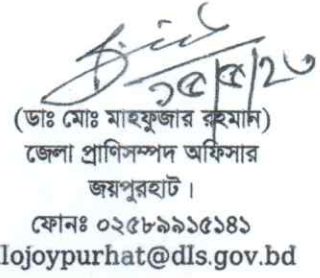 ১৫/৫/২৩
(ডাঃ মোঃ মাহফুজার রহমান)
জেলা প্রাণিসম্পদ অফিসার
জয়পুরহাট।
ফোনঃ ০২৫৮৯৯১৫১৪১
lojoypurhat@dls.gov.bd